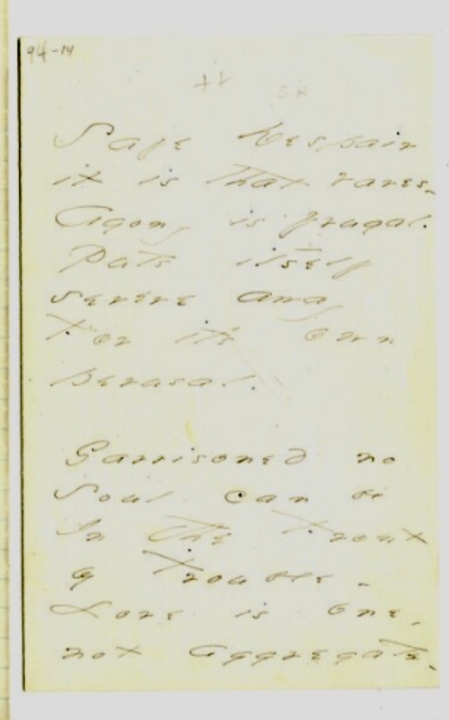 94-14
Safe Despair
it is that raves -
Agony is frugal.
Puts itself
severe away
For it's own
perusal.
Garrisoned no
Soul can be
In the Front
of Trouble -
Love is One,
not Aggregate -